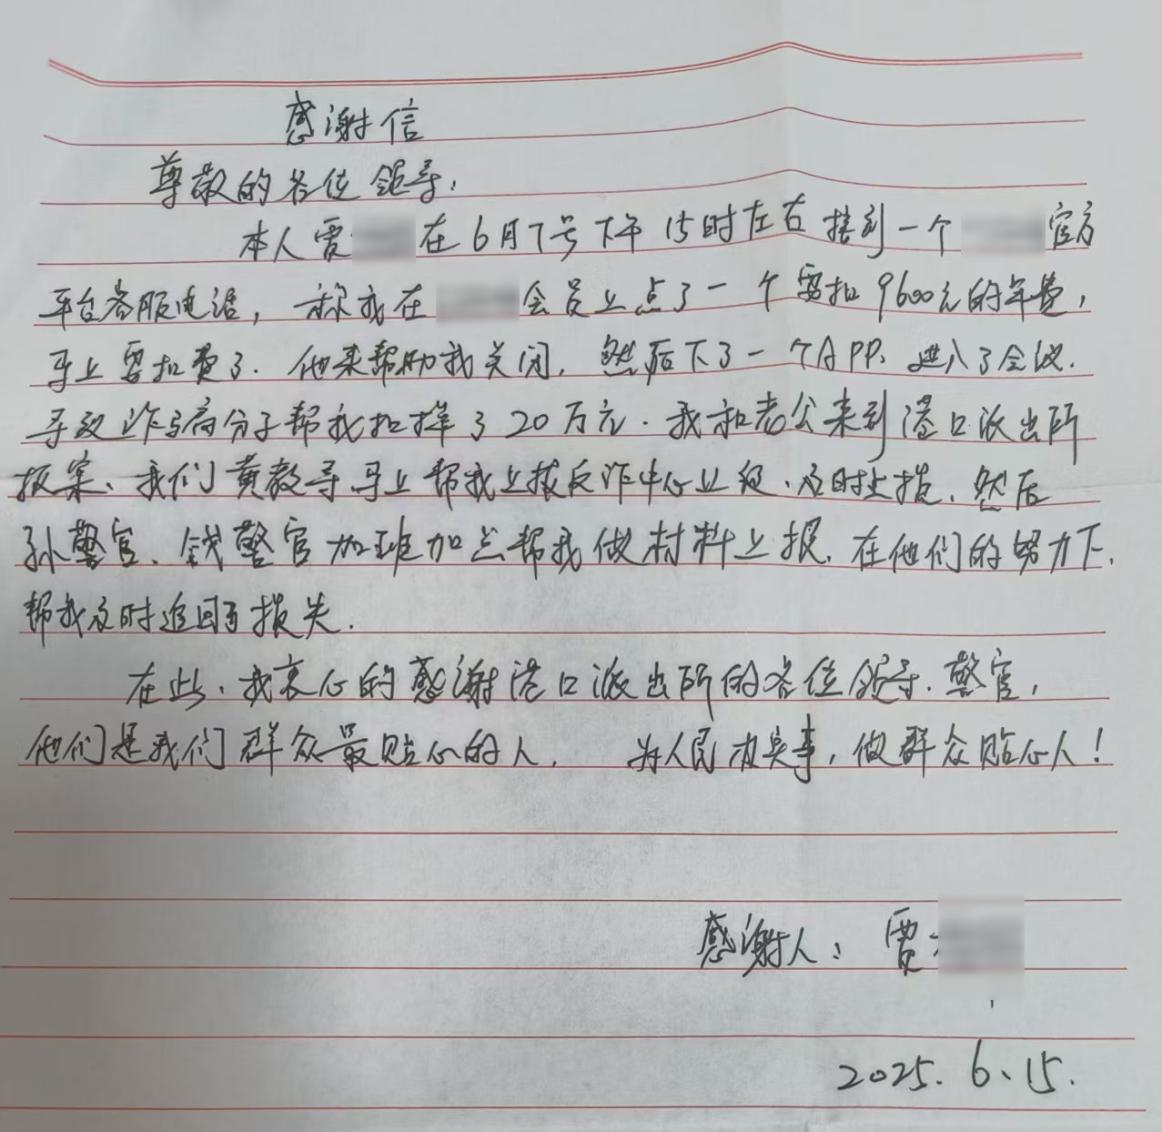 感谢信
尊敬的各位领导:
本人贾 在6月7号下午15时左右接到一个 官方
平台客服电话,称我在 会员上点了一个需扣9600元的年费,
马上要扣费了.他来帮助我关闭,然后下了一个APP.进入了会议.
导致诈骗分子帮我扣掉了20万元.我和老公来到港口派出所
报案、我们黄教导马上帮我上报反诈中心业经、及时止损、然后
孙警官、钱警官加班加点帮我做材料上报.在他们的努力下.
帮我及时追回了损失.
在此、我衷心的感谢港口派出所的各位领导.警官,
他们是我们群众最贴心的人. 为人民办实事,做群众贴心人!
感谢人:贾
2025.6、15.